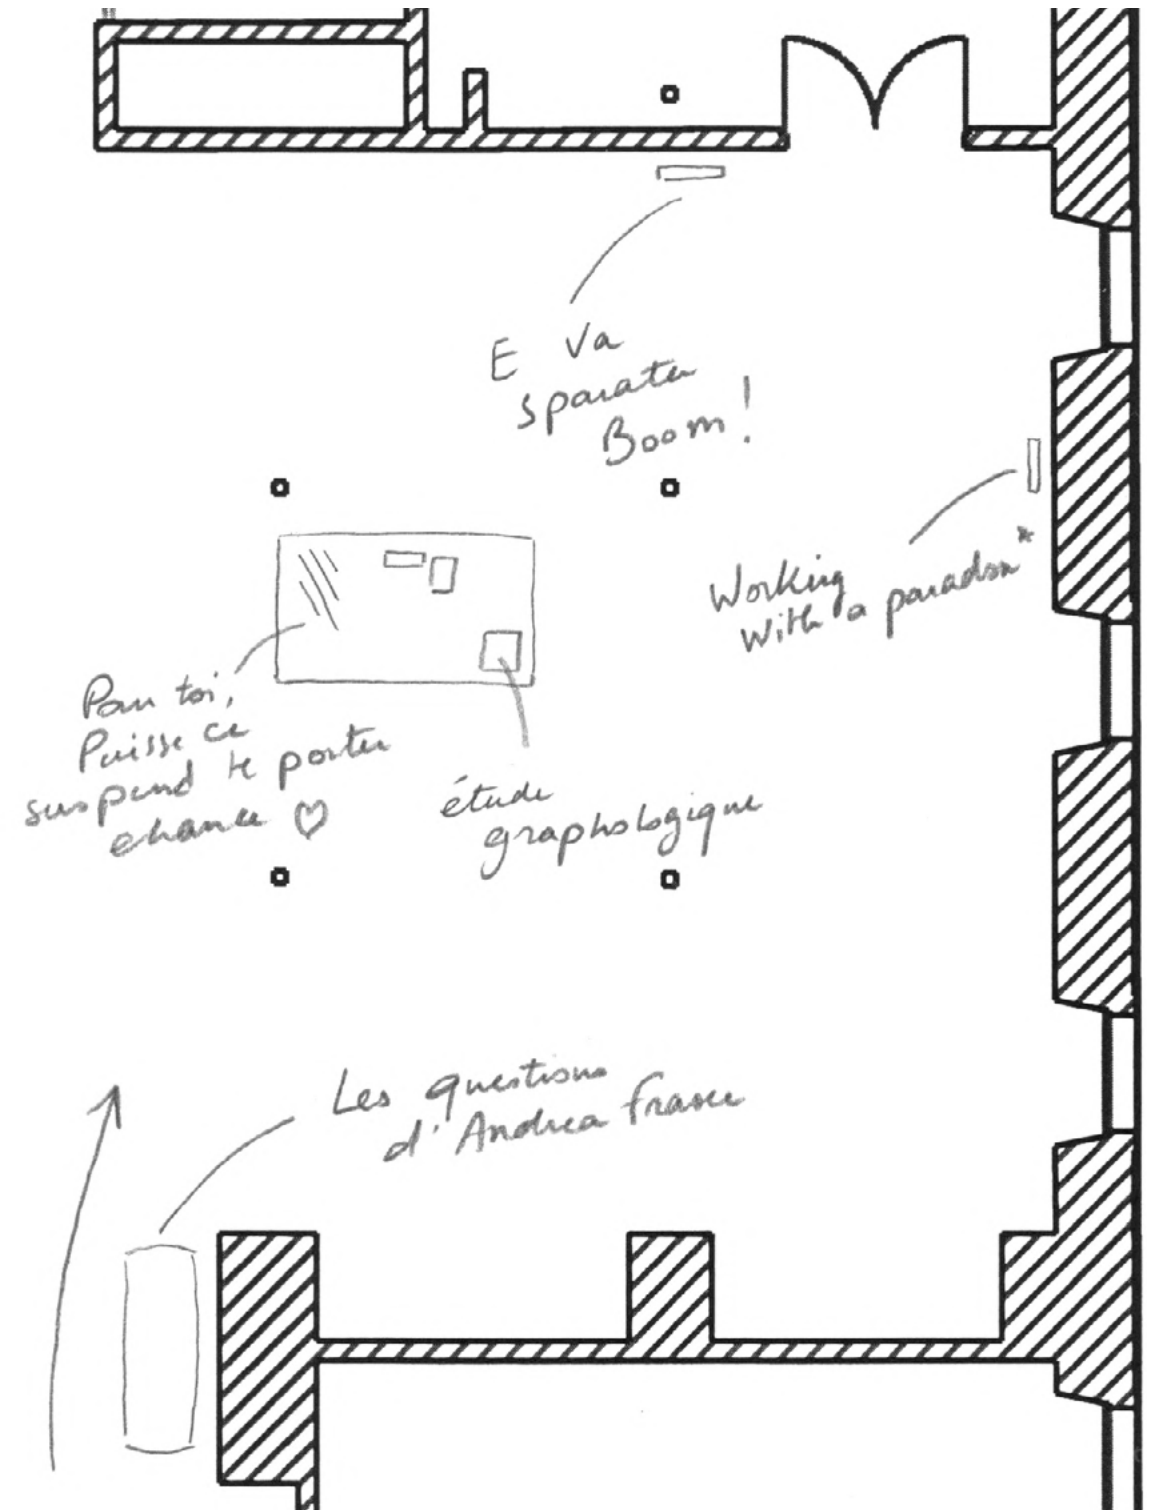 E va
sparater
Boom!
Working
with a paradox*
Pour toi,
Puisse ce
suspend te porter
chance ♡
étude
graphologique
Les questions
d'Andrea Fraser